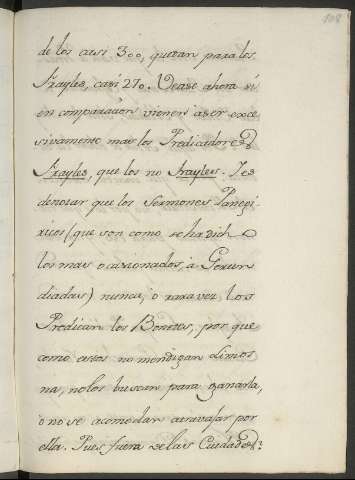 108
de los casi 300, quedan para los
Frayles, casi 270. Vease ahora si
en comparacion vienen a ser exce
sivamente mas los Predicadores
Frayles, que los no frayles. Y es
de notar que los sermones Panegi
ricos (que son como se ha dicho
los mas ocasionados, a Gerun
diadas) nunca, o rara vez, los
Predican los Bonetes, por que
como estos no mendigan Limos
na, no los buscan para ganarla,
o no se acomodan atravajar por
ella. Pues fuera de las Ciudades?